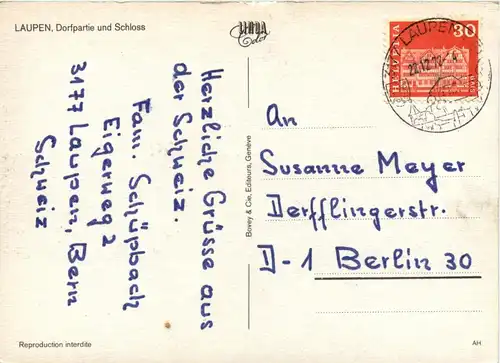 LAUPEN, Dorfpartie und Schloss
Herzliche Grüsse aus
der Schweiz.
Fam. Schüpbach
Eigerweg 2
3177 Laupen, Bern
Schweiz
Reproduction interdite
Bovey & Cie, Editeurs, Genève
HELVETIA
30
3177 LAUPEN
An
Susanne Meyer
Derfflingerstr.
D-1 Berlin 30
AH